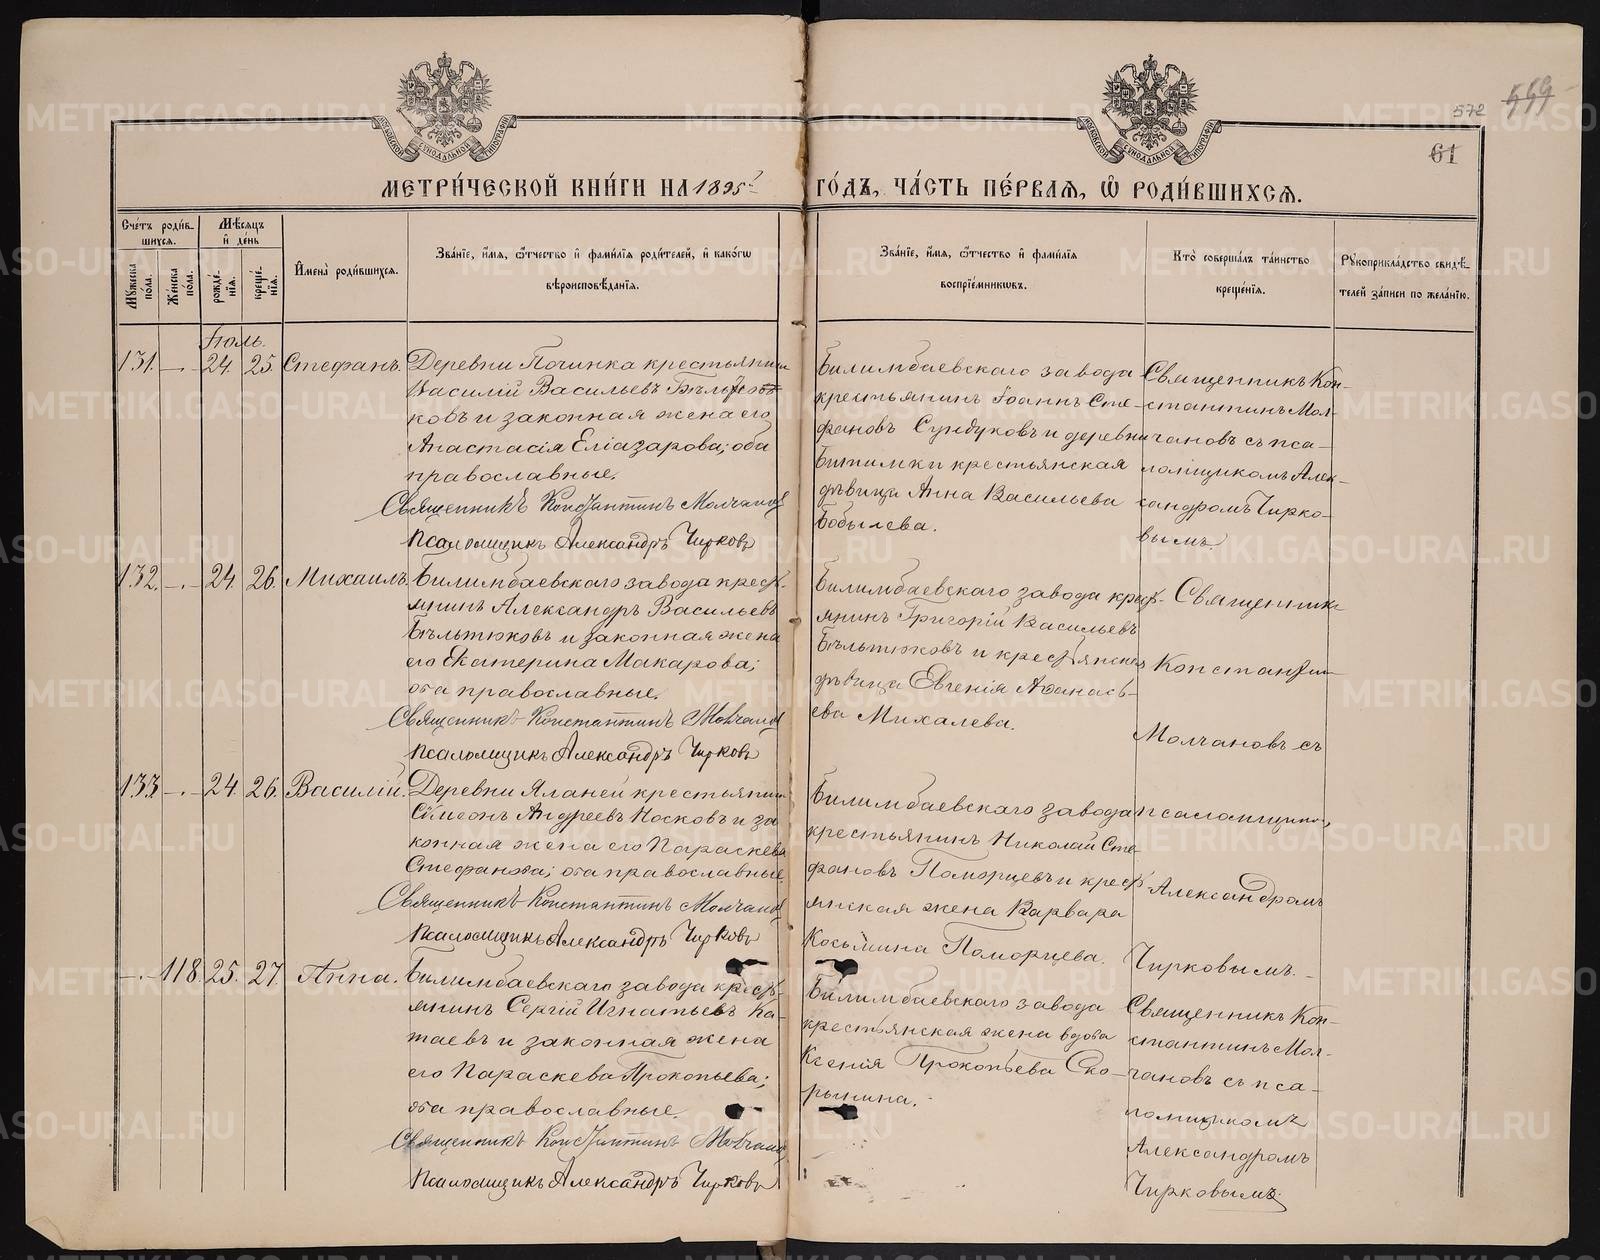 572 559
61
МЕТРИ́ЧЕСКОЙ КНИ́ГИ НА 1895 ГО́ДЪ, ЧА́СТЬ ПЕ́РВАЯ, Ѿ РОДИ́ВШИХСЯ.
Сче́тъ роди́вшихся.
Му́жеска по́ла.
Же́нска по́ла.
Мѣ́сяцъ и҆ де́нь
рожде́нїя.
креще́нїя.
И҆мена̀ роди́вшихся.
Зва́нїе, и҆́мя, ѻ҆́тчество и҆ фами́лїя роди́телей, и҆ како́гѡ
вѣроисповѣ́данїя.
Зва́нїе, и҆́мя, ѻ҆́тчество и҆ фами́лїя
воспрїе́мникѡвъ.
Кто̀ соверша́лъ та́инство
креще́нїя.
Рꙋкоприкла́дство свидѣ́-
телей за́писи по жела́нїю.
Іюль.
131. — 24. 25. Стефанъ.
Деревни Починка крестьянин
Василій Васильевъ Бѣльтю
ковъ и законная жена его
Анастасія Еліазарова; оба
православные.
Священникъ Константинъ Молчановъ
Псаломщикъ Александръ Чирковъ
Билимбаевскаго завода
крестьянинъ Іоаннъ Сте-
фановъ Сундуковъ и деревни
Битимки крестьянская
дѣвица Анна Васильева
Бобылева.
Священникъ Кон-
стантинъ Мол-
чановъ съ пса-
ломщикомъ Алек-
сандромъ Чирко-
вымъ.
132. — 24. 26. Михаилъ.
Билимбаевскаго завода крест-
янинъ Александръ Васильевъ
Бѣльтюковъ и законная жена
его Екатерина Макарова;
оба православные.
Священникъ Константинъ Молчановъ
Псаломщикъ Александръ Чирковъ
Билимбаевскаго завода крест-
янинъ Григорій Васильевъ
Бѣльтюковъ и крестьянская
дѣвица Евгенія Аѳанась-
ева Михалева.
Священникъ
Константинъ
Молчановъ съ
133. — 24. 26. Василій.
Деревни Яланей крестьянин
Сѵмеонъ Андреевъ Носковъ и за
конная жена его Параскева
Стефанова; оба православные.
Священникъ Константинъ Молчановъ
Псаломщикъ Александръ Чирковъ
Билимбаевскаго завода
крестьянинъ Николай Сте
фановъ Поморцевъ и крест
янская жена Варвара
Косьмина Поморцева.
псаломщикомъ
Александромъ
Чирковымъ.
— 118. 25. 27. Анна.
Билимбаевскаго завода крест-
янинъ Сергій Игнатьевъ Ка-
таевъ и законная жена
его Параскева Прокопьева;
оба православные.
Священникъ Константинъ Молчановъ
Псаломщикъ Александръ Чирковъ
Билимбаевскаго завода
крестьянская жена вдова
Ксенія Прокопьева Ско-
рынина.
Священникъ Кон-
стантинъ Мол-
чановъ съ пса-
ломщикомъ
Александромъ
Чирковымъ.
METRIKI.GASO-URAL.RU